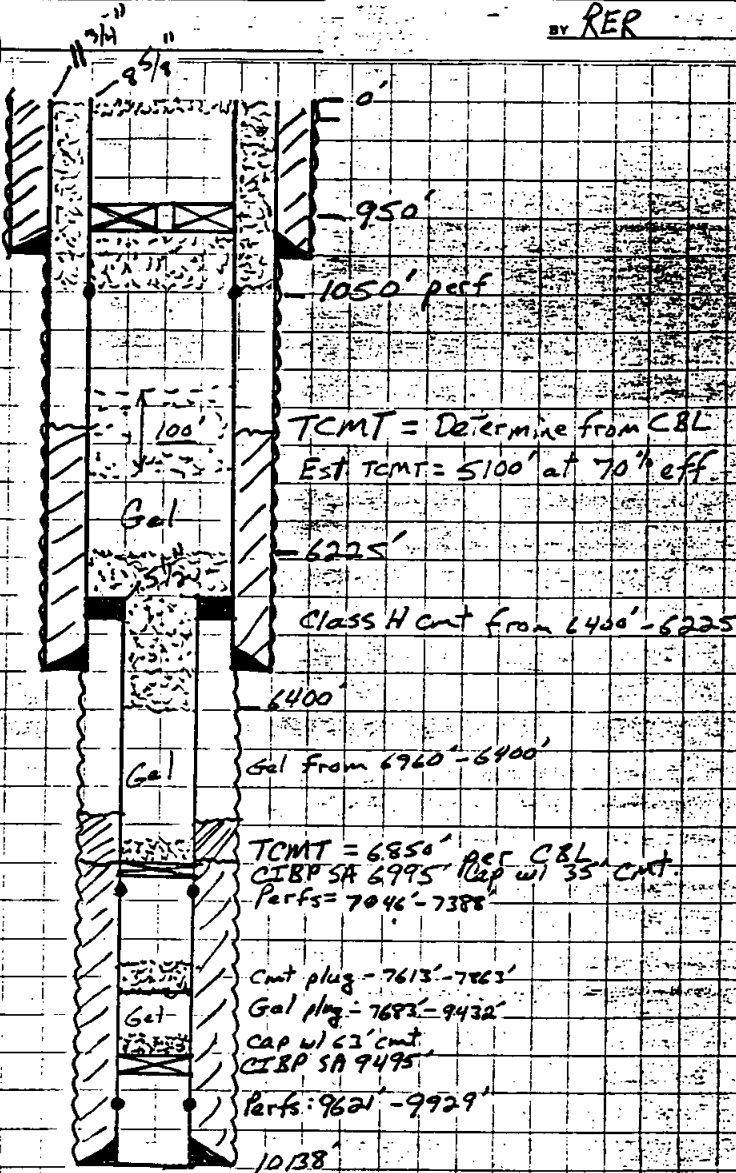 BY RER
11 3/4"
8 5/8"
0'
950'
1050' perf
TCMT = Determine from CBL
100'
Est TCMT = 5100' at 70% eff.
Gel
6225'
5 1/2"
Class H cmt from 6400'-6225'
6400'
Gel
Gel from 6960'-6400'
TCMT = 6850' per CBL
CIBP SA 6995' Cap w/ 35' cmt.
Perfs = 7046'-7388'
Cmt plug - 7613'-7863'
Gel
Gel plug - 7683'-9432'
Cap w/ 63' cmt
CIBP SA 9495'
Perfs: 9621'-9929'
10138'